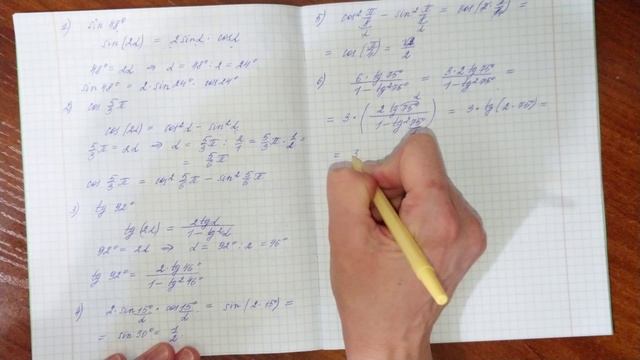 1) sin 48°
sin(2α) = 2sinα · cosα
48° = 2α ⇒ α = 48° : 2 = 24°
sin 48° = 2 · sin 24° · cos 24°
2) cos 5/3 π
cos(2α) = cos²α - sin²α
5/3 π = 2α ⇒ α = 5/3 π : 2/1 = 5/3 π · 1/2 =
= 5/6 π
cos 5/3 π = cos² 5/6 π - sin² 5/6 π
3) tg 92°
tg(2α) = 2tgα / 1 - tg²α
92° = 2α ⇒ α = 92° : 2 = 46°
tg 92° = 2 · tg 46° / 1 - tg² 46°
4) 2 · sin 15° · cos 15° = sin(2 · 15°) =
α α
= sin 30° = 1/2
5) cos² π/8 - sin² π/8 = cos(2 · π/8) =
α α
= cos(π/4) = √2/2
6) 6 · tg 75° / 1 - tg² 75° = 3 · 2 tg 75° / 1 - tg² 75° =
= 3 · (2 tg 75° / 1 - tg² 75°) = 3 · tg(2 · 75°) =
= 3